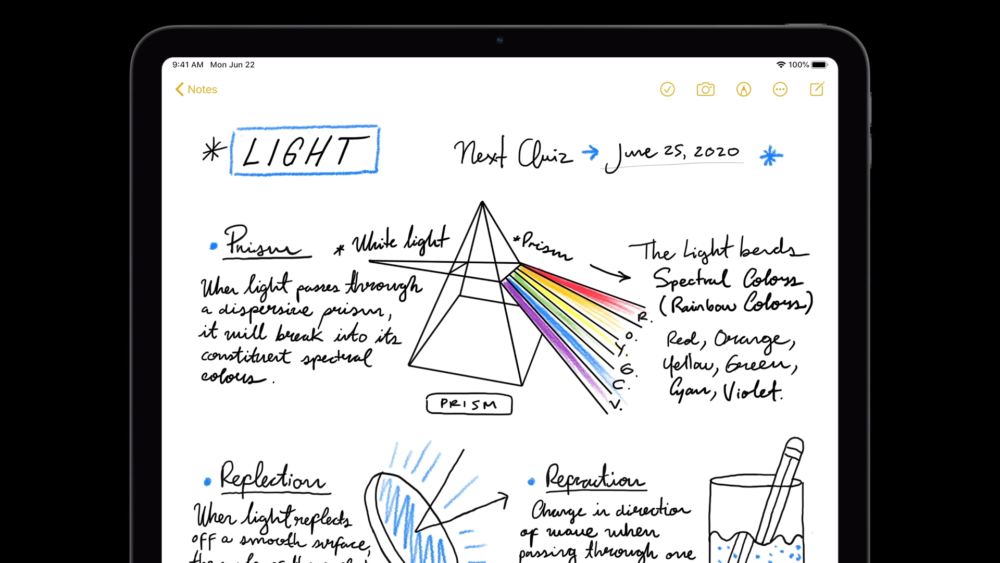 9:41 AM Mon Jun 22
100%
Notes
* LIGHT
Next Quiz → June 25, 2020 *
• Prism
* White light
*Prism
When light passes through
a dispersive prism,
it will break into its
constituent spectral
colours.
The Light bends
Spectral Colors
(Rainbow Colors)
Red, Orange,
Yellow, Green,
Cyan, Violet.
R.
O.
Y.
G.
C.
V.
PRISM
• Reflection
When light reflects
off a smooth surface,
• Refraction
Change in direction
of wave when
passing through one